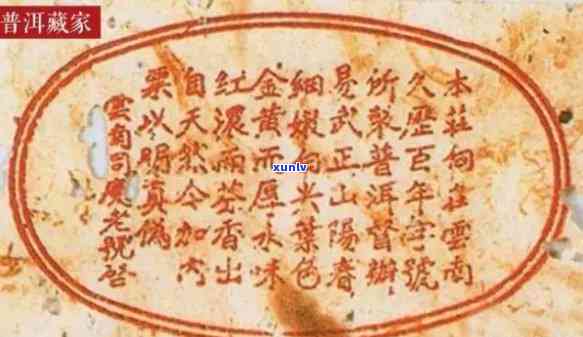 普洱藏家
本莊向在雲南
久歷百年字號
所製普洱督辦
易武正山陽春
細嫩白尖葉色
金黃而厚水味
紅濃而芬香出
自天然今加內
票以明真偽
雲南同慶老號啓
xunlv